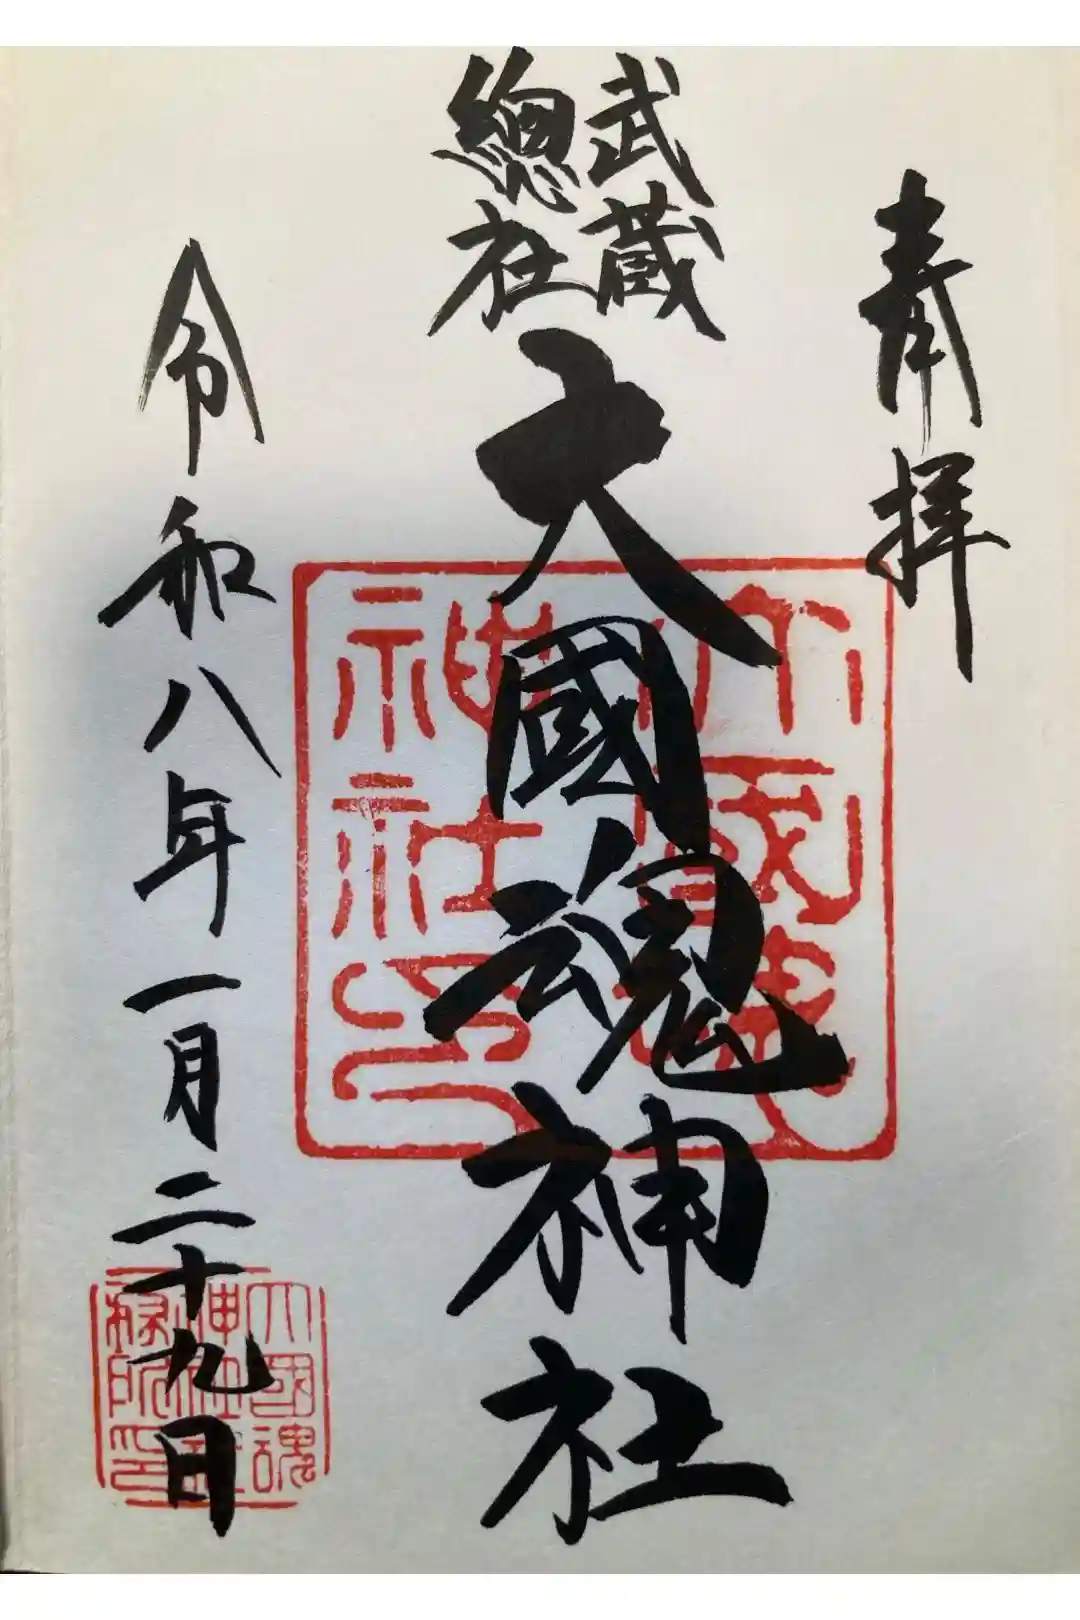 奉拝
武蔵
總社
大國魂神社
令和八年一月二十九日
大國魂
神社印
大國魂
神社
務所印